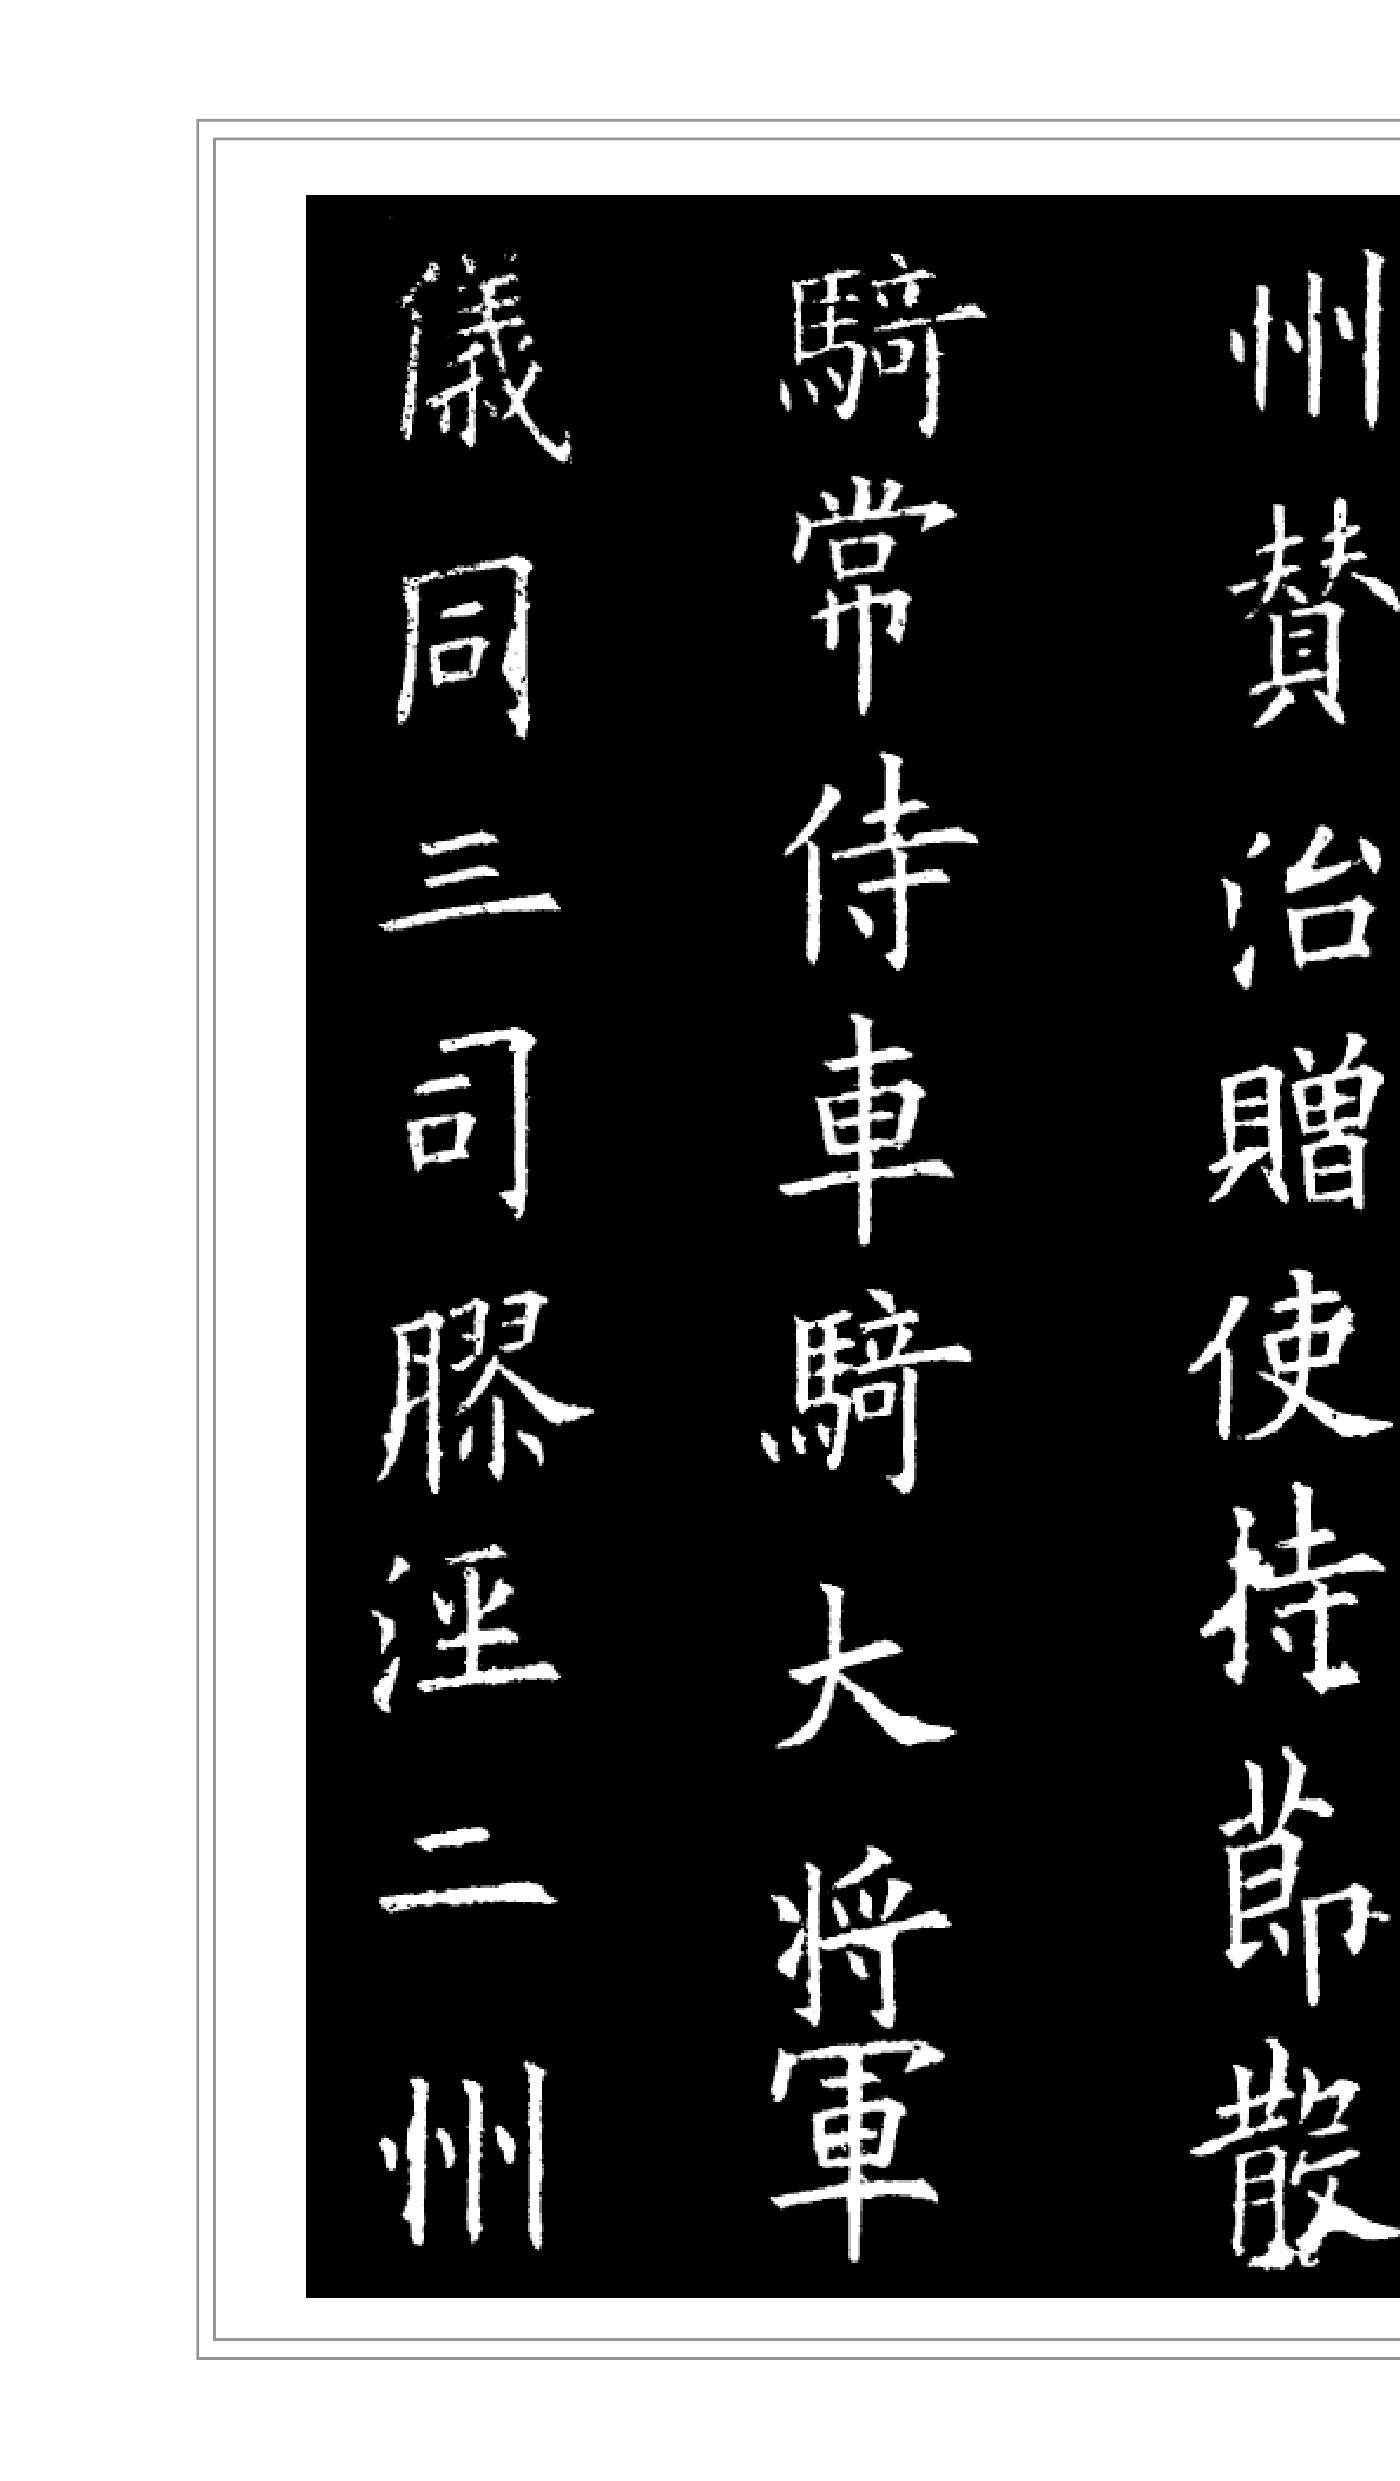 州賛治贈使持節散
騎常侍車騎大将軍
儀同三司膠涇二州